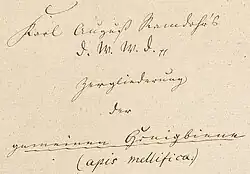 Karl August Ramdohr's
d. W. W. d. 
Zergliederung
der
gemeinen Honigbiene
(apis mellifica.)